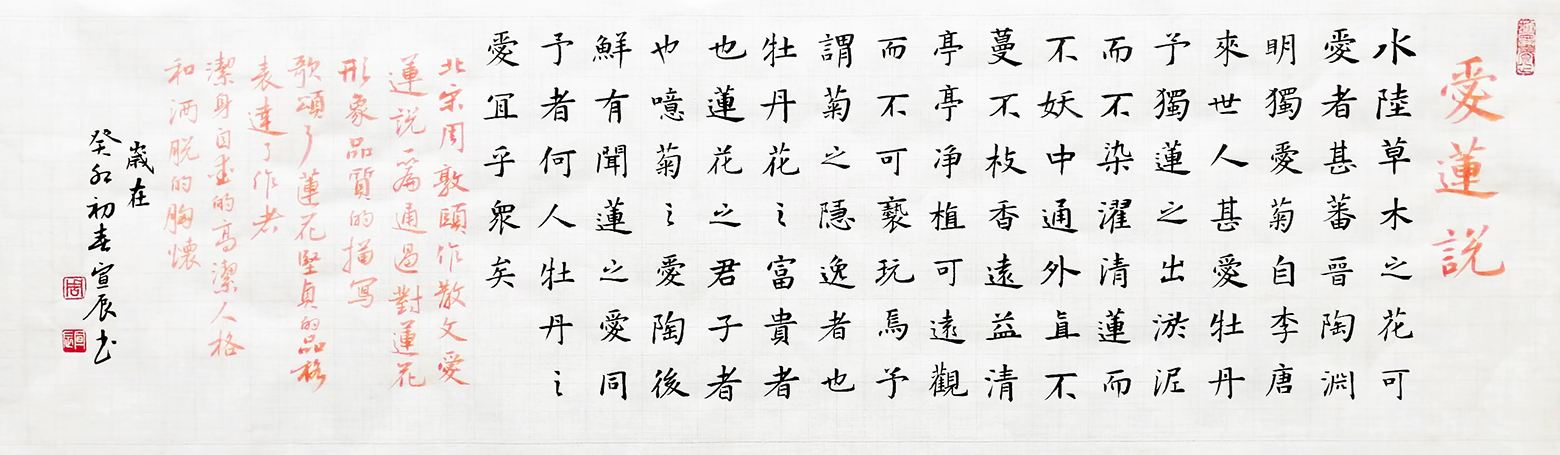 愛蓮說
水陸草木之花可
愛者甚蕃晉陶淵
明獨愛菊自李唐
來世人甚愛牡丹
予獨蓮之出淤泥
而不染濯清蓮而
不妖中通外直不
蔓不枝香遠益清
亭亭净植可遠觀
而不可褻玩焉予
謂菊之隱逸者也
牡丹花之富貴者
也蓮花之君子者
也噫菊之愛陶後
鮮有聞蓮之愛同
予者何人牡丹之
愛宜乎眾矣
北宋周敦頤作散文愛
蓮説一篇通過對蓮花
形象品質的描寫
歌頌了蓮花堅貞的品格
表達了作者
潔身自愛的高潔人格
和洒脱的胸懷
歲在
癸卯初春宣辰书